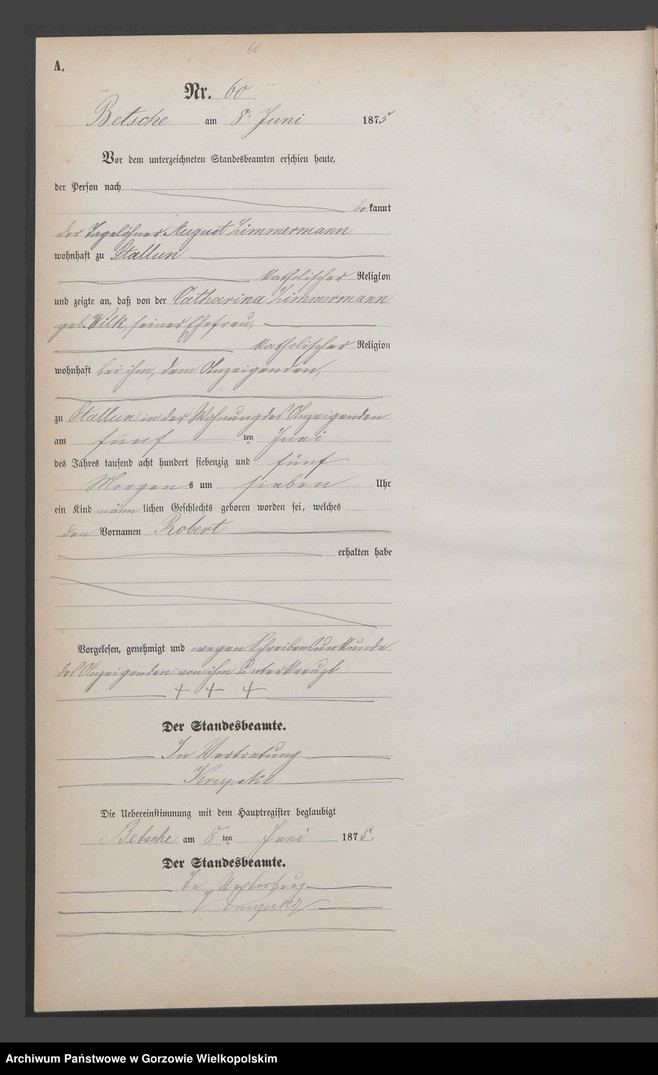 60
A.
Nr. 60
Betsche am 8. Juni 1875
Vor dem unterzeichneten Standesbeamten erschien heute,
der Person nach
bekannt
der Tagelöhner August Zimmermann
wohnhaft zu Stallun
katholischer Religion
und zeigte an, daß von der Catharina Zimmermann
geb. Wilk, seiner Ehefrau,
katholischer Religion
wohnhaft bei ihm, dem Anzeigenden,
zu Stallun in der Wohnung des Anzeigenden
am fünf ten Juni
des Jahres tausend acht hundert siebenzig und fünf
Morgens um sieben Uhr
ein Kind männlichen Geschlechts geboren worden sei, welches
den Vornamen Robert
erhalten habe
Vorgelesen, genehmigt und wegen Schreibensunkunde
des Anzeigenden von ihm unterkreuzt
+ + +
Der Standesbeamte.
In Vertretung
Die Uebereinstimmung mit dem Hauptregister beglaubigt
Betsche am 8ten Juni 1875.
Der Standesbeamte.
In Vertretung
Archiwum Państwowe w Gorzowie Wielkopolskim